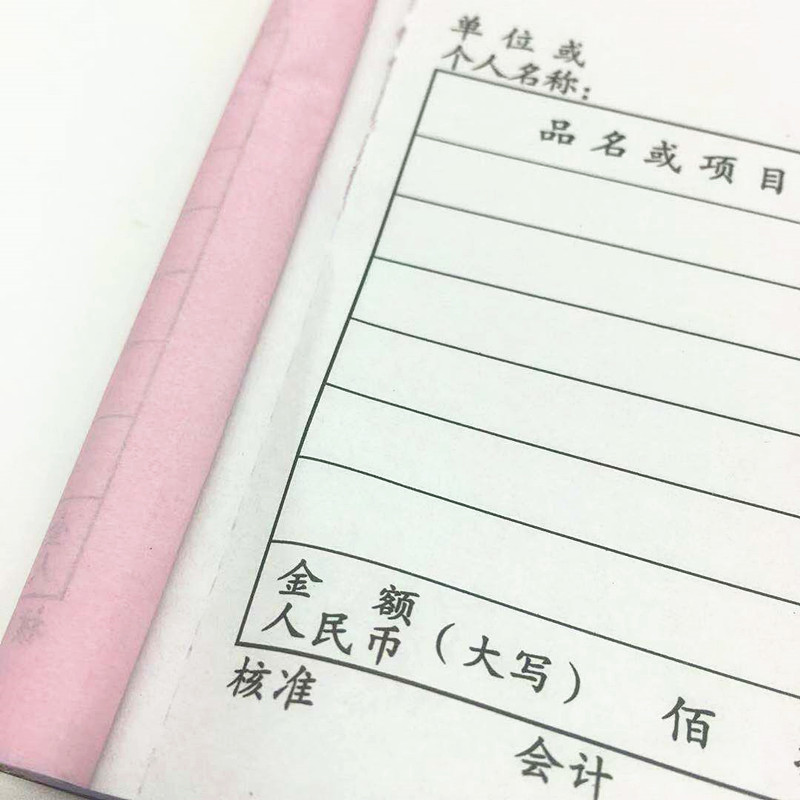 单位或
个人名称：
品名或项目
金额
人民币（大写） 佰
核准
会计